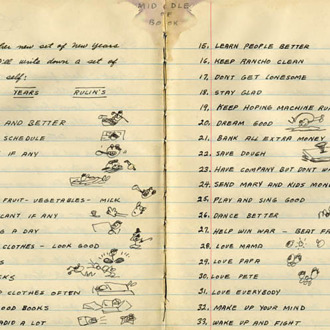 MIDDLE
OF
BOOK
her new set of New Years
I'll write down a set of
self:
YEARS RULIN'S
AND BETTER
SCHEDULE
IF ANY
FRUIT - VEGETABLES - MILK
CANT IF ANY
G A DAY
CLOTHES - LOOK GOOD
S
CKS
D CLOTHES OFTEN
OOD BOOKS
ADIO A LOT
15. LEARN PEOPLE BETTER
16. KEEP RANCHO CLEAN
17. DONT GET LONESOME
18. STAY GLAD
19. KEEP HOPING MACHINE RUN
20. DREAM GOOD
21. BANK ALL EXTRA MONEY
22. SAVE DOUGH
23. HAVE COMPANY BUT DONT W
24. SEND MARY AND KIDS MONE
25. PLAY AND SING GOOD
26. DANCE BETTER
27. HELP WIN WAR - BEAT FA
28. LOVE MAMA
29. LOVE PAPA
30. LOVE PETE
31. LOVE EVERYBODY
32. MAKE UP YOUR MIND
33. WAKE UP AND FIGHT